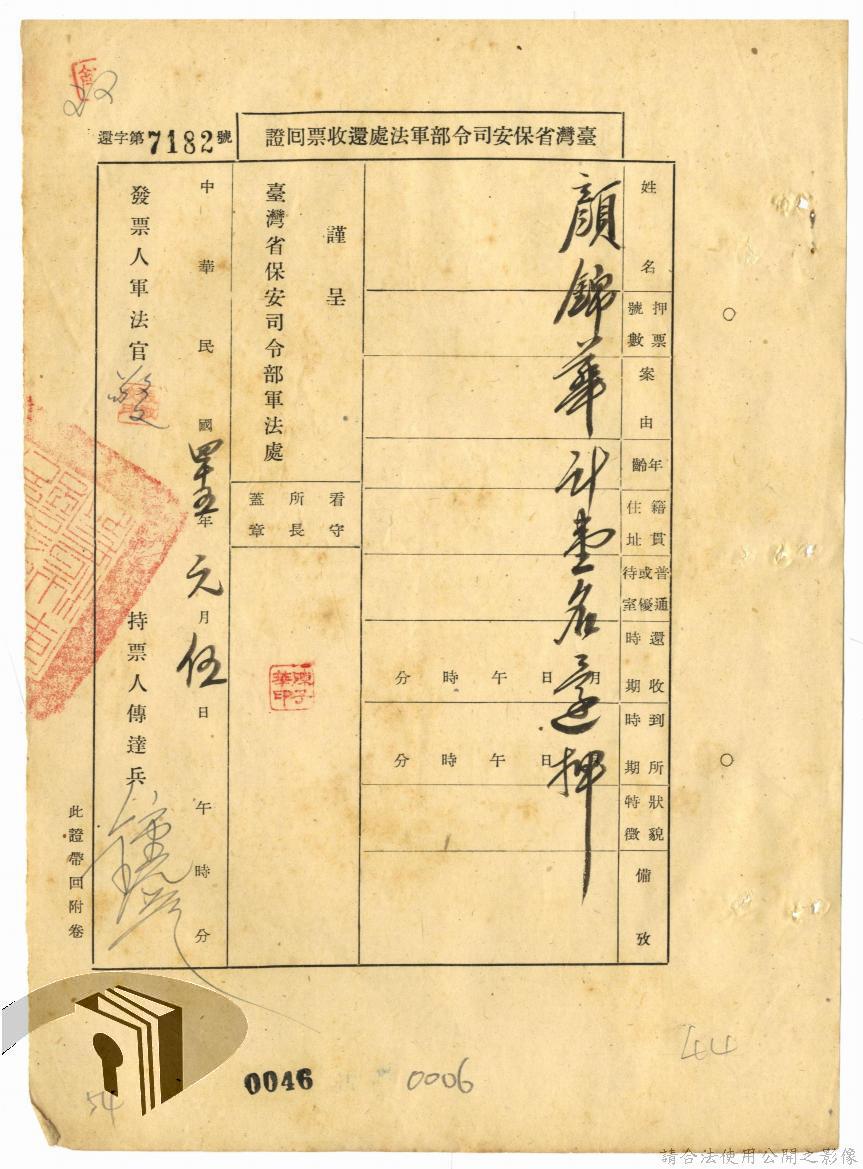 臺灣省保安司令部軍法處還收票回證
還字第7182號
姓名
押票號數
案由
年齡
籍貫住址
普通或優待室
還收時期
到所時期
狀貌特徵
備攷
顏錦華計壹名還押
月日午時分
月日午時分
謹呈
臺灣省保安司令部軍法處
看守所長蓋章
陳子華印
中華民國四十五年元月伍日午時分
發票人軍法官
持票人傳達兵
此證帶回附卷
0046
0006
44
54
請合法使用公開之影像